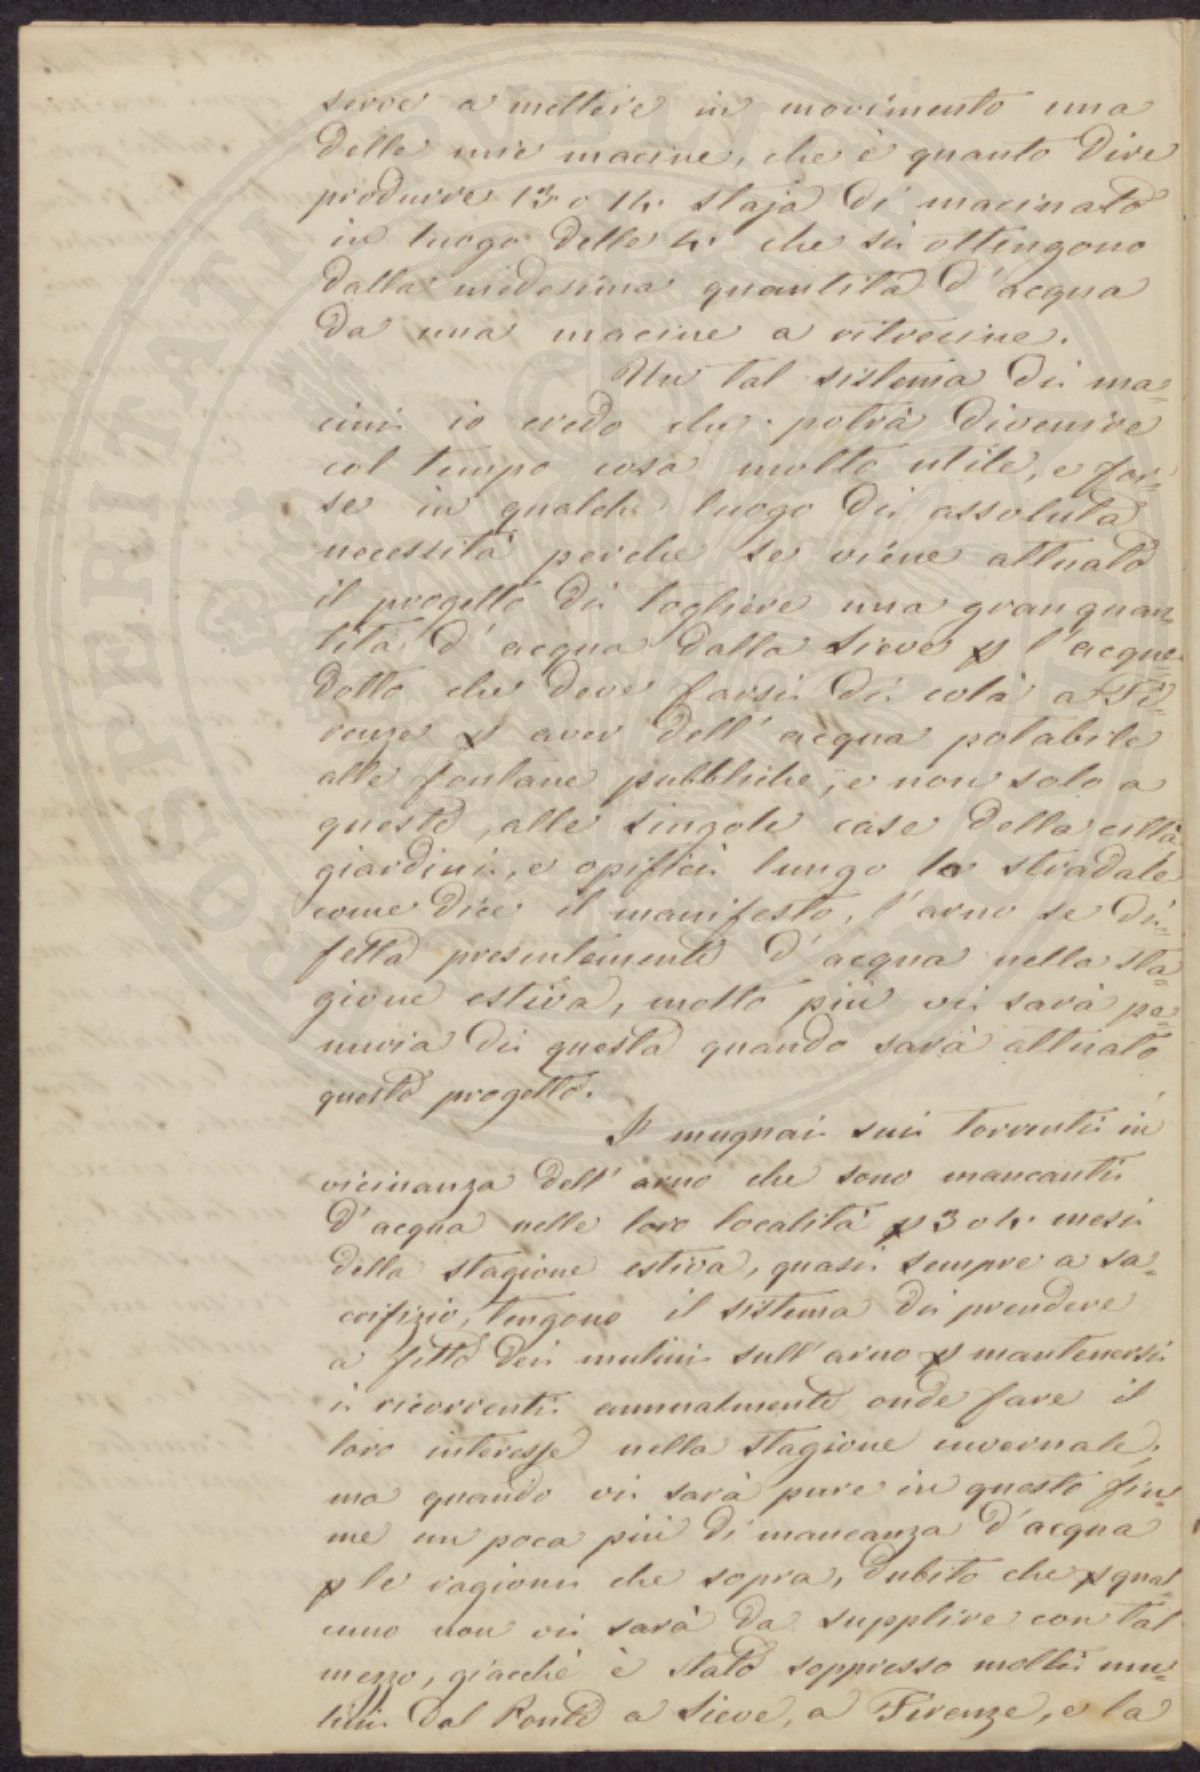 serve a mettere in movimento una
delle mie macine, che è quanto dire
produrre 13. o 14. staja di macinato
in luogo delle 4. che si ottengono
dalla medesima quantità d'acqua
da una macine a ritrecine.
Un tal sistema di ma=
cini io credo che potrà divenire
col tempo cosa molto utile, e for=
se in qualche luogo di assoluta
necessità perche se viene attuato
il progetto di togliere una gran quan=
tità d'acqua dalla Sieve p l'acque=
dotto che deve farsi di colà a Fi=
renze p aver dell'acqua potabile
alle fontane pubbliche, e non solo a
queste, alle singole case della città
giardini, e opifici lungo lo stradale
come dice il manifesto, l'arno se di=
fetta presentemente d'acqua nella sta=
gione estiva, molto più vi sarà pe=
nuria di questa quando sarà attuato
questo progetto.
I mugnai sui torrenti in
vicinanza dell'arno che sono mancanti
d'acqua nelle loro località p 3 o 4. mesi
della stagione estiva, quasi sempre a sa=
crifizio, tengono il sistema di prendere
a fitto dei mulini sull'arno p mantenersi
i ricorrenti annualmente onde fare il
loro interesse nella stagione invernale;
ma quando vi sarà pure in questo fiu=
me un poca più di mancanza d'acqua
p le ragioni che sopra, dubito che p qual=
cuno non vi sarà da supplire con tal
mezzo, giacchè è stato soppresso molti mu=
lini dal Ponte a Sieve, a Firenze, e la
PROSPERITATI PVBLICAE